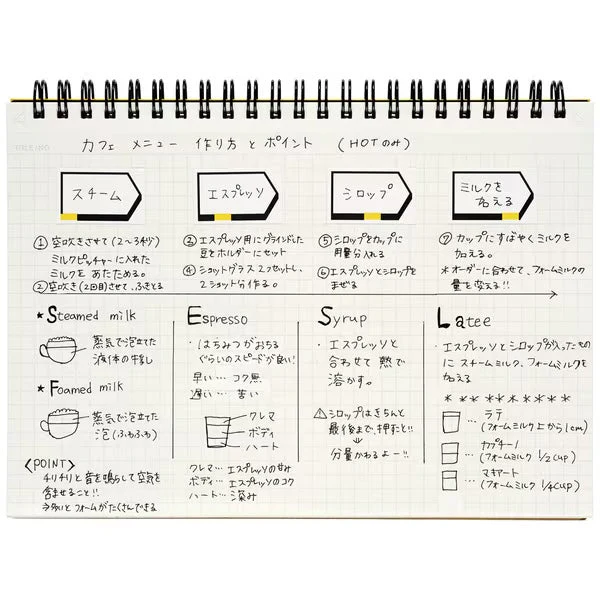 カフェ メニュー 作り方 と ポイント (HOTのみ)
スチーム
エスプレッソ
シロップ
ミルクを
加える
① 空吹きさせて(2〜3秒)
ミルクピッチャーに入れた
ミルクを あたためる。
② 空吹き(2回目)させて、ふきとる
③ エスプレッソ用にグラインドした
豆をホルダーにセット
④ ショットグラス 2つセットし、
2ショット分作る。
⑤ シロップをカップに
用量分入れる
⑥ エスプレッソとシロップを
まぜる
⑦ カップにすばやくミルクを
加える。
*オーダーに合わせて、フォームミルクの
量を変える!!
★ Steamed milk
蒸気で泡立てた
液体の牛乳
★ Foamed milk
蒸気で泡立てた
泡(ふわふわ)
〈POINT〉
チリチリと音を鳴らして空気を
含ませること!!
Espresso
・はちみつがおちる
ぐらいのスピードが良い!
早い… コク無
遅い… 苦い
クレマ
ボディ
ハート
クレマ… エスプレッソの甘み
ボディ… エスプレッソのコク
ハート… 深み
Syrup
・エスプレッソと
合わせて 熱で
溶かす。
⚠シロップはきちんと
最後まで、押すと!!
分量かわるよー!!
Latee
・エスプレッソとシロップが入ったもの
に スチームミルク、フォームミルクを
加える
* * * * * * * * *
… ラテ
(フォームミルク上から1cm)
… カプチーノ
(フォームミルク 1/2cup)
… マキアート
(フォームミルク 1/4cup)